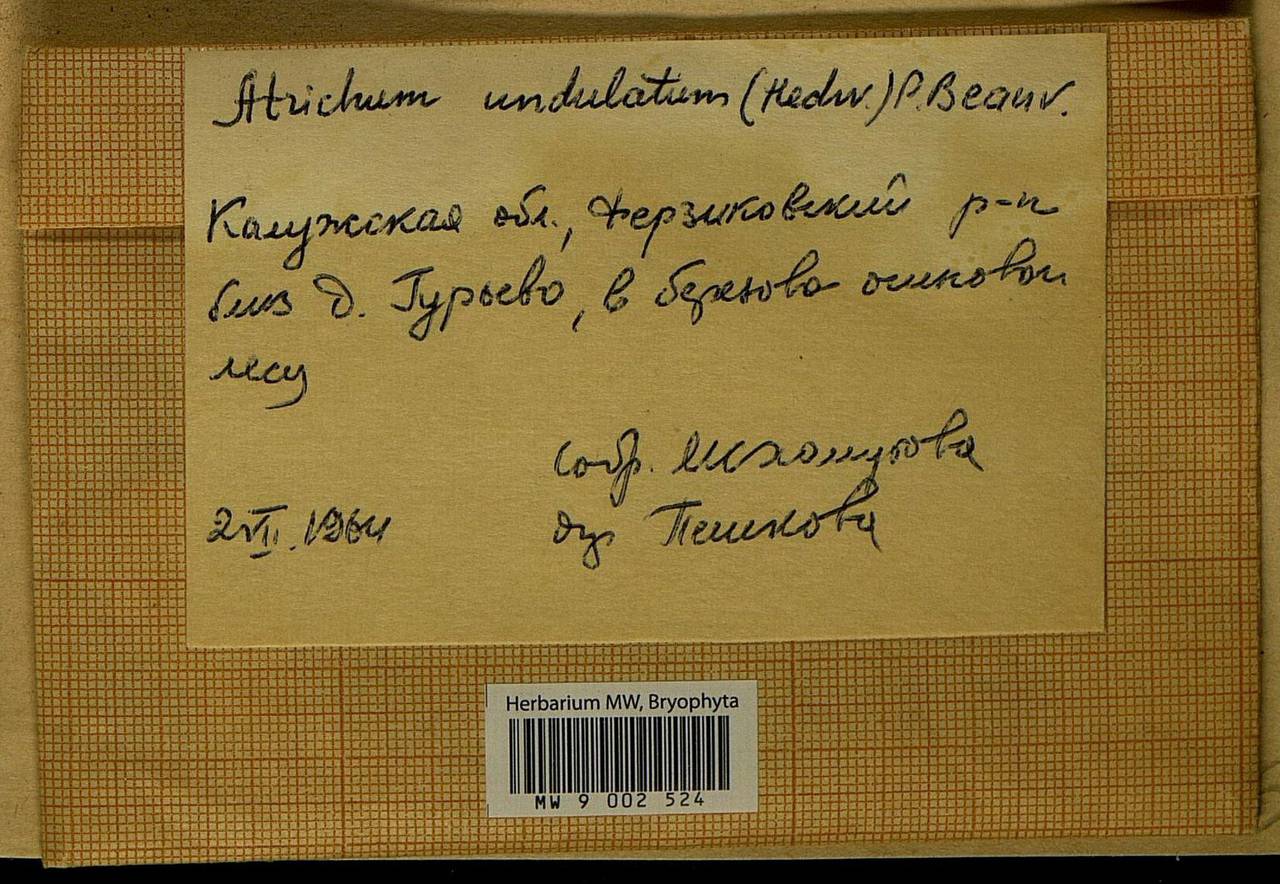 Atrichum undulatum (Hedw.) P. Beauv.
Калужская обл., Ферзиковский р-н
близ д. Гурьево, в березово осиновом
лесу
собр. Шхомутова
2 VII. 1964
опр Пешкова
Herbarium MW, Bryophyta
MW 9 002 524